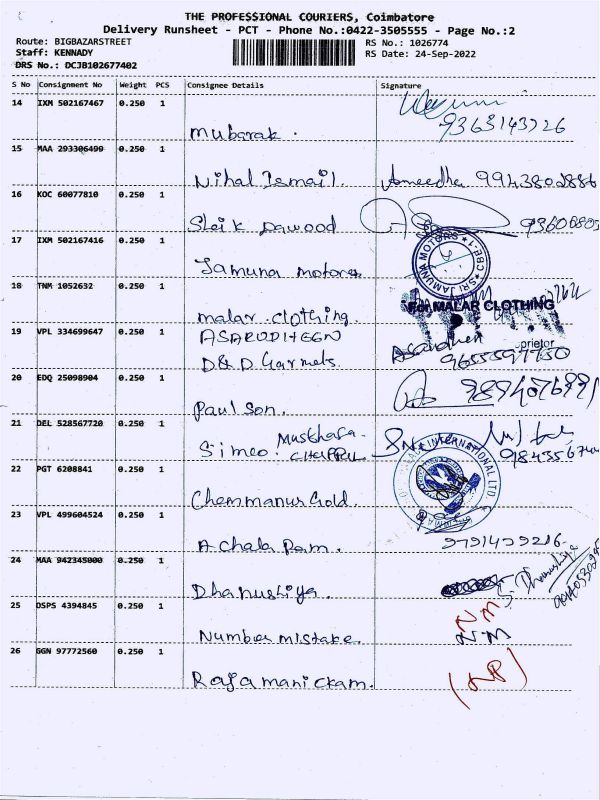 THE PROFESSIONAL COURIERS, Coimbatore
Delivery Runsheet - PCT - Phone No.:0422-3505555 - Page No.:2
Route: BIGBAZARSTREET
RS No.: 1026774
Staff: KENNADY
RS Date: 24-Sep-2022
DRS No.: DCJB102677402
S No Consignment No Weight PCS Consignee Details Signature
14 IXM 502167467 0.250 1
Mubarak. 9363143726
15 MAA 293306499 0.250 1
Nihal Ismail. Ameedha 9943802886
16 KOC 60077810 0.250 1
Sheik Dawood
17 IXM 502167416 0.250 1
SRI JAMUNA MOTORS CBE-1
Jamuna motores
18 TNM 1052632 0.250 1
For MALAR CLOTHING
malar clothing
19 VPL 334699647 0.250 1
ASARUDHEEN
prietor
D&D Garmets. 9655597750
20 EDQ 25098904 0.250 1
Paulson.
21 DEL 528567720 0.250 1
Simeo.
22 PGT 6208841 0.250 1
INTERNATIONAL LTD
Chemmanur Gold.
23 VPL 499604524 0.250 1
A Chala Ram. 9791499216-
24 MAA 942345000 0.250 1
Dhanushiya. S. Dhanushiya
25 OSPS 4394845 0.250 1
NM
Number mistake. NM
26 GGN 97772560 0.250 1
Rajamanickam.